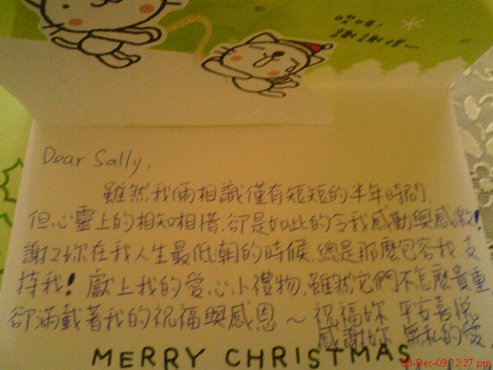 哎呀!
謝謝得~
Dear Sally,
雖然我倆相識僅有短短的半年時間,
但心靈上的相知相惜,卻是如此的令我感動與感激!
謝謝妳在我人生最低朝的時候,總是那麼包容我,支
持我!獻上我的愛心小禮物,雖然它們不怎麼貴重,
卻滿載著我的祝福與感恩~祝福妳 平安喜悅
感謝妳 無私的愛
MERRY CHRISTMAS
08-Dec-09 12:27 pm